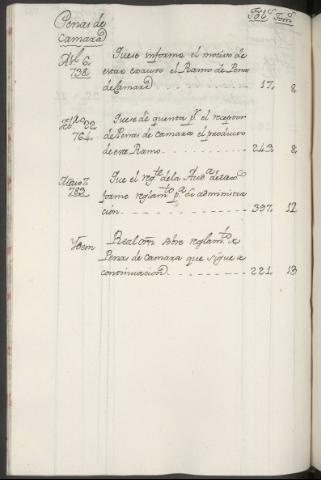 Penas de
Camara
Fol.s Tom.s
Abl. 6. Que se informe el motivo de
738. estar excuso el Ramo de Penas
de Camara 17. 8
de quenta p.r el receptor
764. de Penas de camara el producto
de este Ramo 243. 8.
Marzo 7. Que el Reg.te de la Aud.a
783. forme reglam.to p.a la administra
cion 397. 12
Ydem Real orn. sobre reglam.to de
Penas de Camara que sigue a
continuacion 221. 13